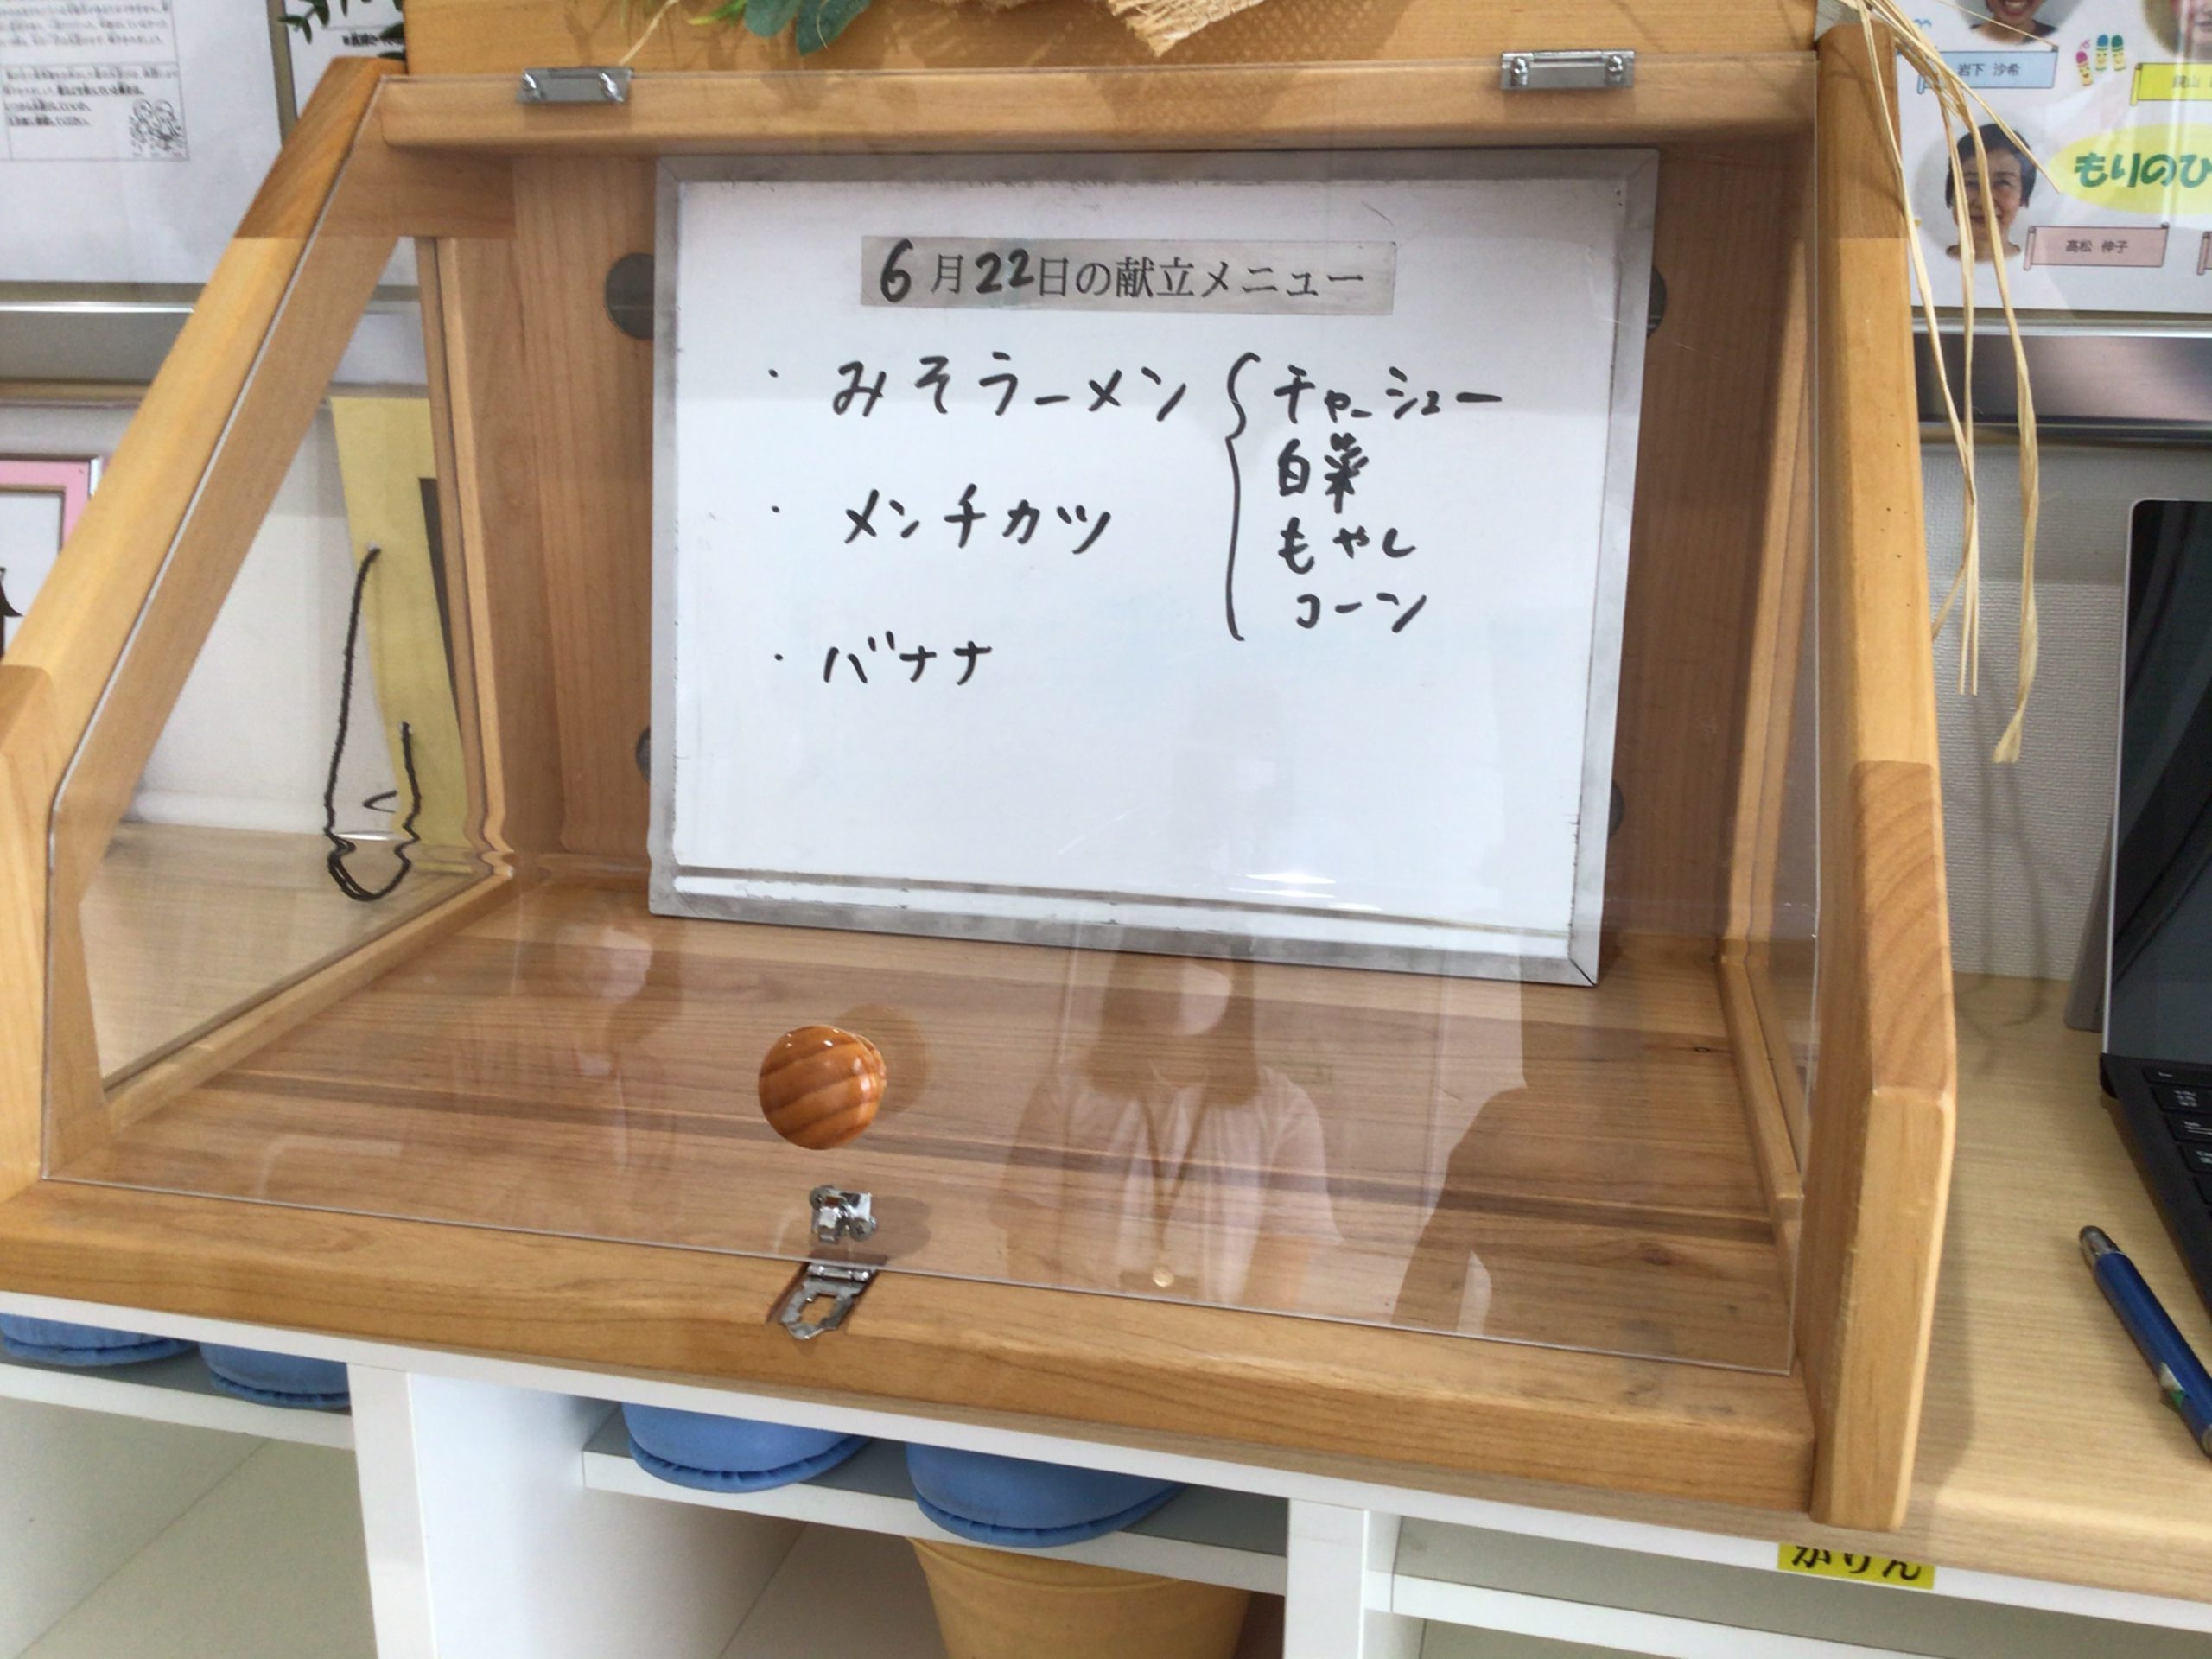 6月22日の献立メニュー
・ みそラーメン { チャーシュー
白菜
もやし
コーン
・ メンチカツ
・ バナナ
岩下 沙希
もりのひ
高松 伸子
かりん